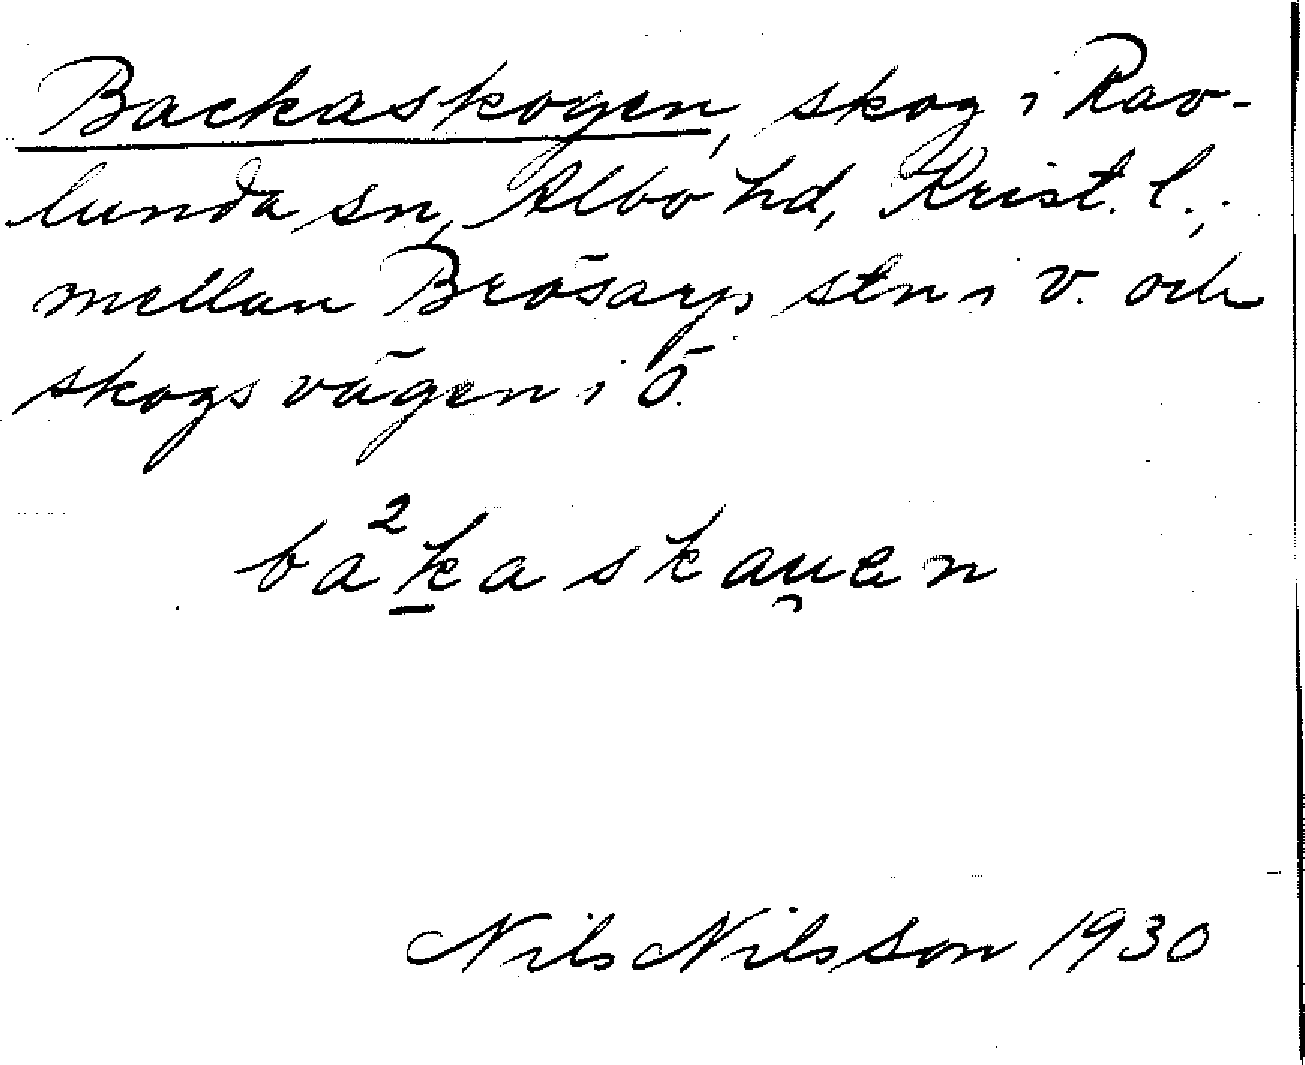 Backaskogen, skog i Rav-
lunda sn, Albo hd, Krist. l.,
mellan Brösarp stn i v. och
skogsvägen i ö.
ba²k̲askau̯en
Nils Nilsson 1930